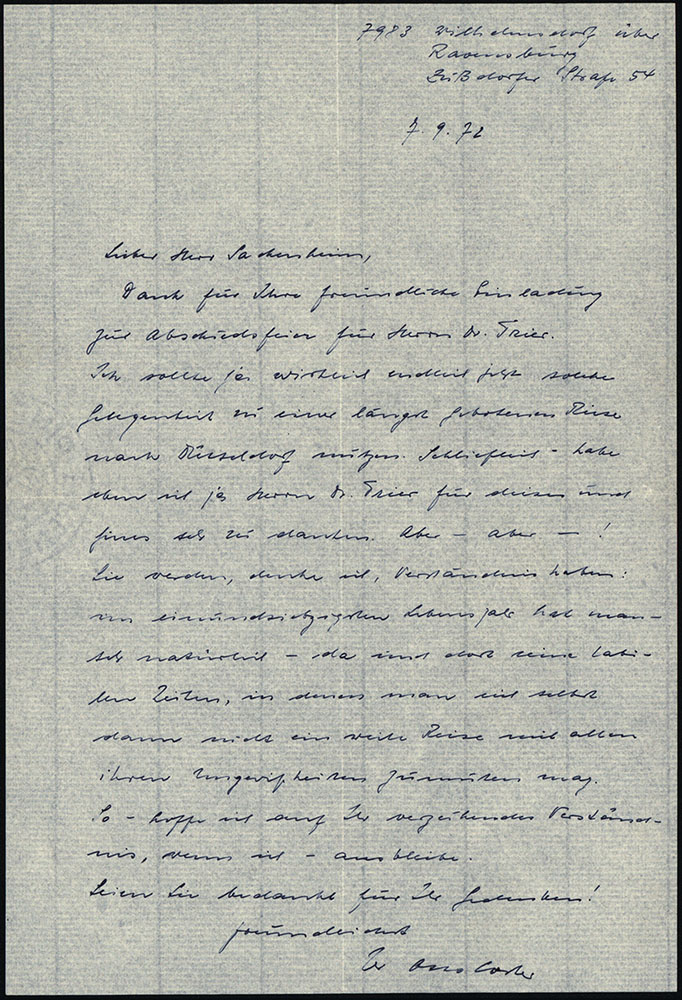 7983 Wilhelmsdorf über
Ravensburg
Zußdorfer Straße 54
7. 9. 72
Lieber Herr Sackersheim,
Dank für Ihre freundliche Einladung
zur Abschiedsfeier für Herrn Dr. Trier.
Ich sollte ja wirklich endlich jetzt solche
Gelegenheit zu einer längst gebotenen Reise
nach Düsseldorf nutzen. Schließlich - habe
eben ich ja Herrn Dr. Trier für dieses und
jenes sehr zu danken. Aber - aber - !
Sie werden, denke ich, Verständnis haben:
im einundsiebzigsten Lebensjahr hat man -
sehr natürlich - da und dort seine labi-
len Zeiten, in denen man sich selbst
dann nicht eine weite Reise mit allen
ihren Ungewißheiten zumuten mag.
So - hoffe ich auf Ihr verzeihendes Verständ-
nis, wenn ich - ausbleibe.
Seien Sie bedankt für Ihr Gedenken!
freundlichst
Ihr Otto